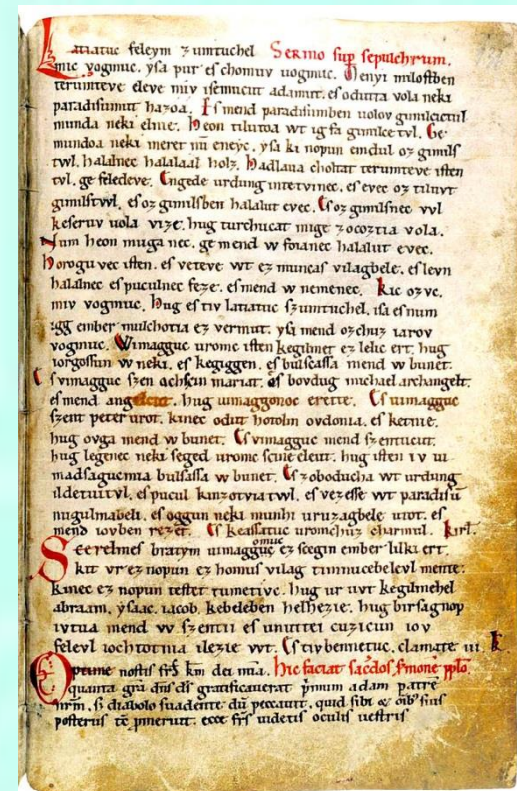 Latiatuc feleym zumtuchel Sermo sup sepulchrum.
mic vogmuc. ysa pur es chomuv uogmuc. Menyi milostben
terumteve eleve miv isemucut adamut. es odutta vola neki
paradisumut hazoa. Es mend paradisumben uolov gimilcictul
munda neki elnie. Heon tilutoa wt ig fa gimilce tvl. Ge
mundoa neki meret nū eneyc. ysa ki nopun emdul oz gimils
tvl. halalnec halalaal holz. Hadlaua choltat terumteve isten
tvl. ge feledeve. Engede urdung intetvinec. es evec oz tiluvt
gimilstvvl. es oz gimilsben halalut evec. Es oz gimilsnec vvl
keseruv uola vize. hug turchucat mige zocoztia vola.
Num heon muga nec. ge mend w foianec halalut evec.
Horogu vec isten. es veteve wt ez muncas vilagbele. es levn
halalnec es puculnec feze. es mend w nemenec. Kic ozvc.
miv vogmuc. Hug es tiv latiatuc szumtuchel. isa es num
igg ember mulchotia ez vermut. ysa mend ozchuz iarov
vogmuc. Wimagguc uromc isten kegilmet ez lelic ert. hug
iorgossun w neki. es kegiggen. es bulsassa mend w bunet.
Es vimagguc szen achscin mariat. es bovdug michael archangelt.
es mend angelcut. hug uimaggonoc erette. Es uimagguc
szent peter urot. kinec odut hotolm ovdonia. es ketnie.
hug ovga mend w bunet. Es vimagguc mend szentucut.
hug legenec neki seged uromc scine eleut. hug isten iv ui
madsaguemia bulsassa w bunet. Es zoboducha wt urdung
ildetuitvl. es pucul kinzotviatwl. es vezesse wt paradisu
nugulmabeli. es oggun neki munhi uruzagbele utot. es
mend iovben rezet. Es keassatuc uromchuz charmul. kirl.
Scerelmes bratym uimagguc omuc ez scegin ember lilki ert.
kit vr ez nopun ez homus vilag timnucebelevl mente.
kinec ez nopun testet tumetivc. hug ur uvt kegilmehel
abraam. ysaac. iacob. kebeleben helhezie. hug birsagnop
ivtua mend w szentii es unuttei cuzicun iov
felevl iochtotnia ilezie wt. Es tiv bennetuc. clamate iii. k.